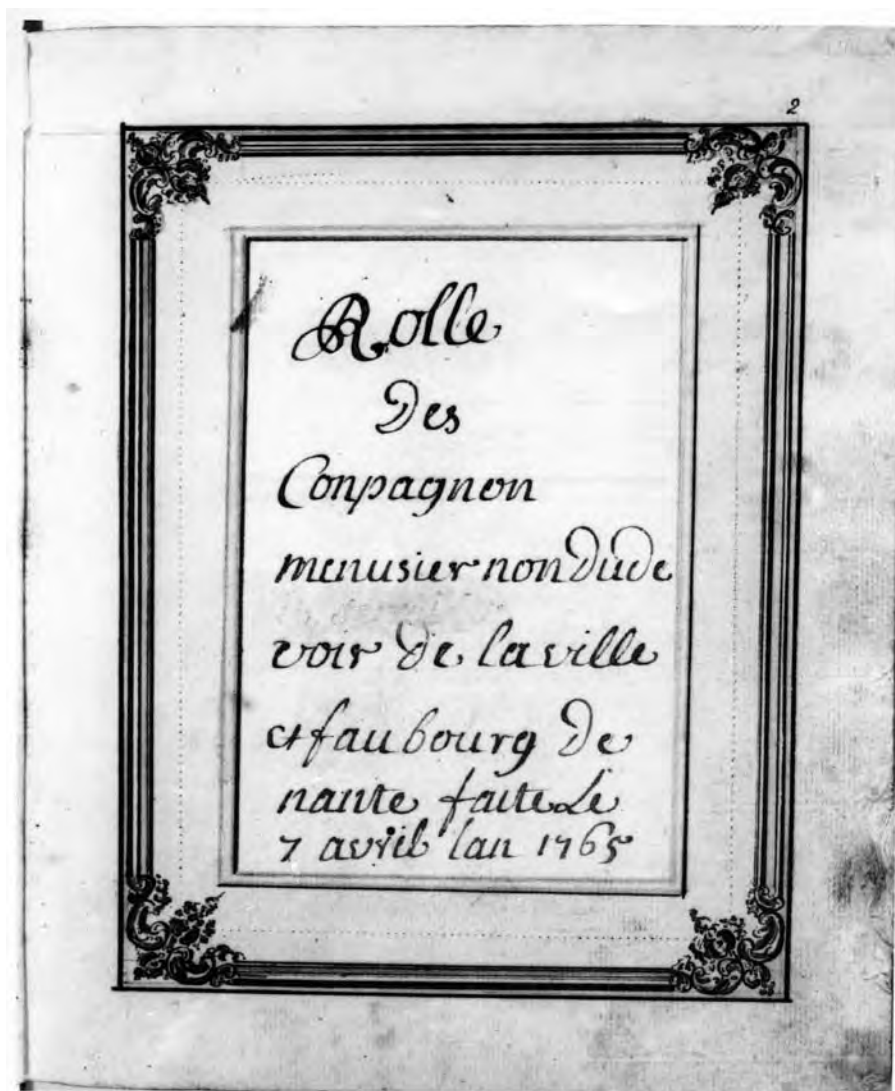 2
Rolle
Des
Conpagnon
menusier non Dude
voir De la ville
et faubourg De
nante faite Le
7 avril lan 1765